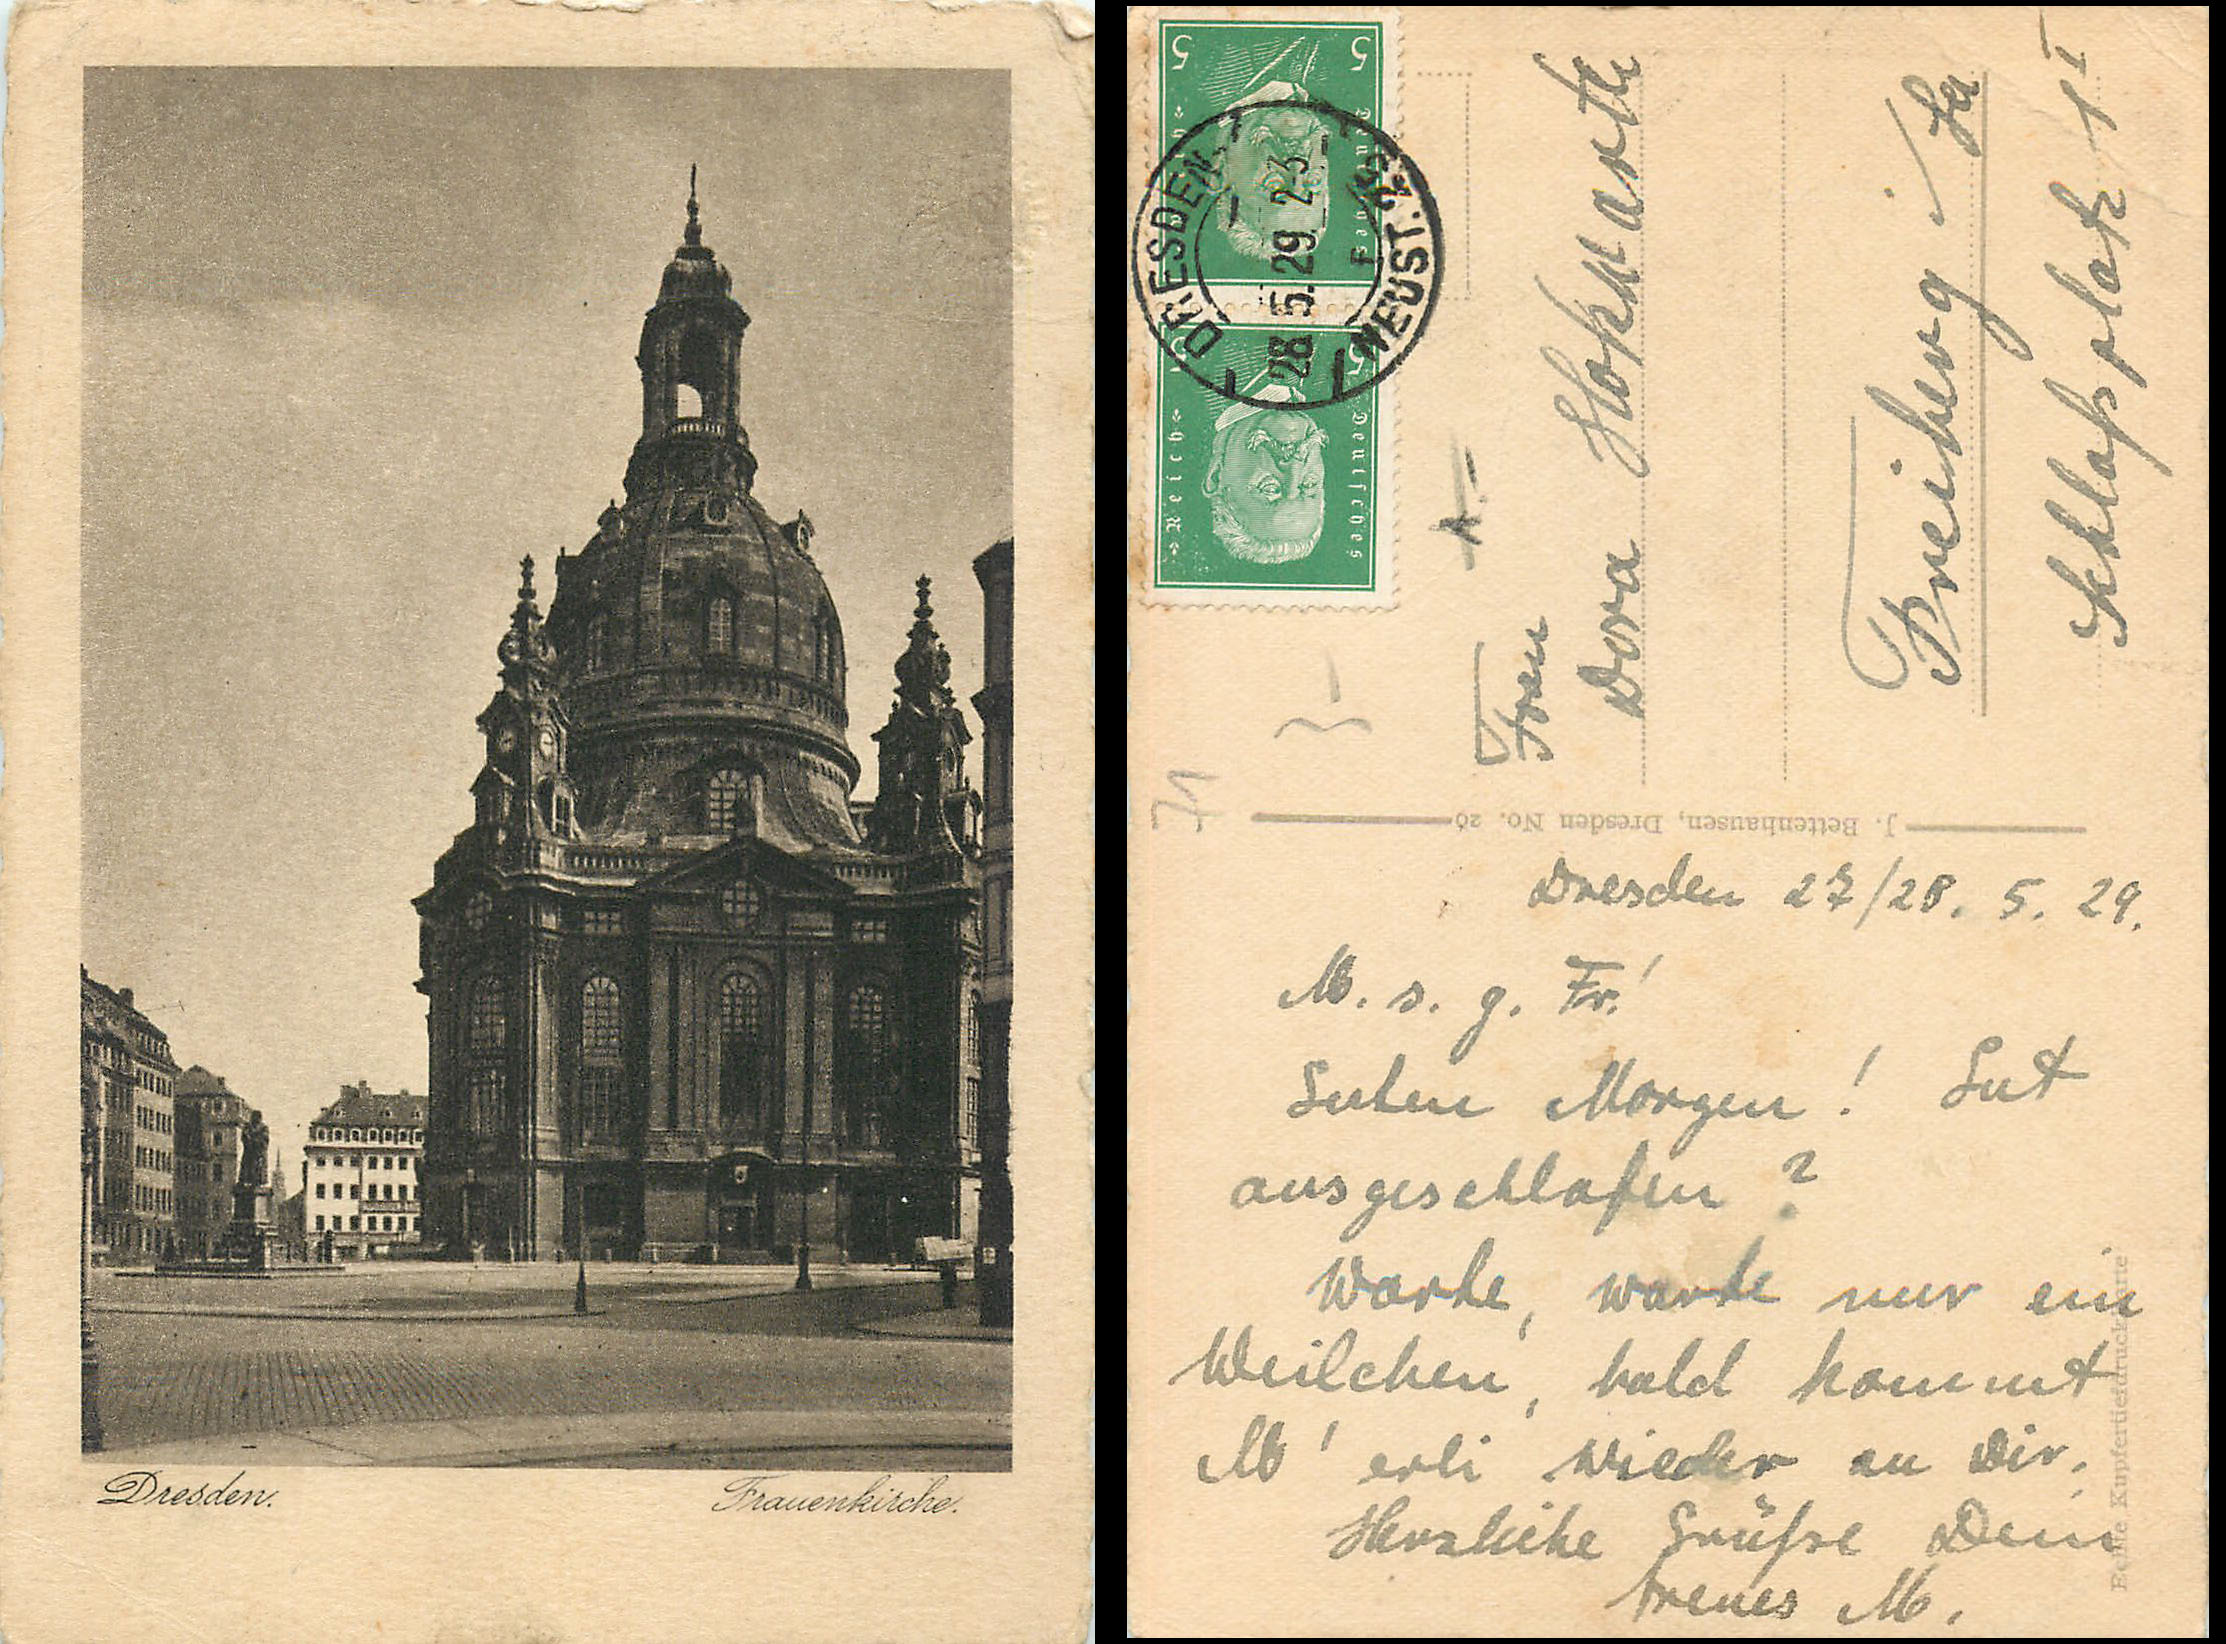 Dresden.
Frauenkirche.
5 5
Deutsches Reich
5 5
Deutsches Reich
DRESDEN
28.5.29. 2-3
NEUST. 23
F
A.-
3-
71
Frau
Dora
Freiberg i/Sa
Schloßplatz 1 I
J. Bettenhausen, Dresden No. 20
Dresden 27/28. 5. 29.
M. s. g. Fr.!
Guten Morgen! Gut
ausgeschlafen?
Warte, warte nur ein
Weilchen, bald kommt
M'erli wieder zu Dir.
Herzliche Grüße Dein
treues M.
Echte Kupfertiefdruckkarte